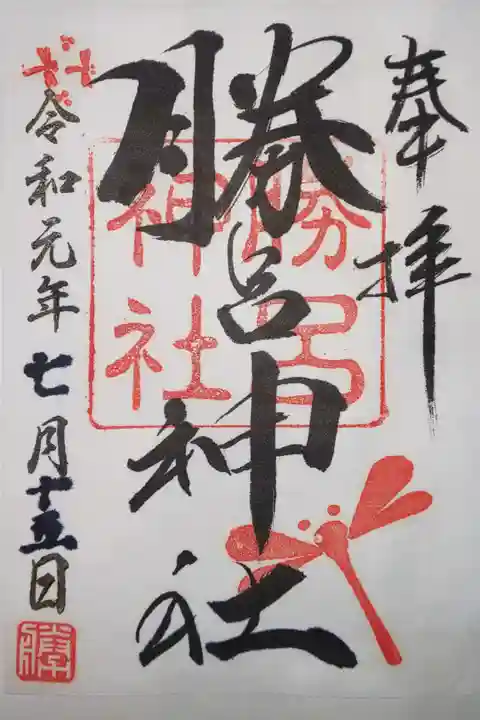 奉拝
勝呂神社
勝呂
神社
令和元年七月十五日
勝